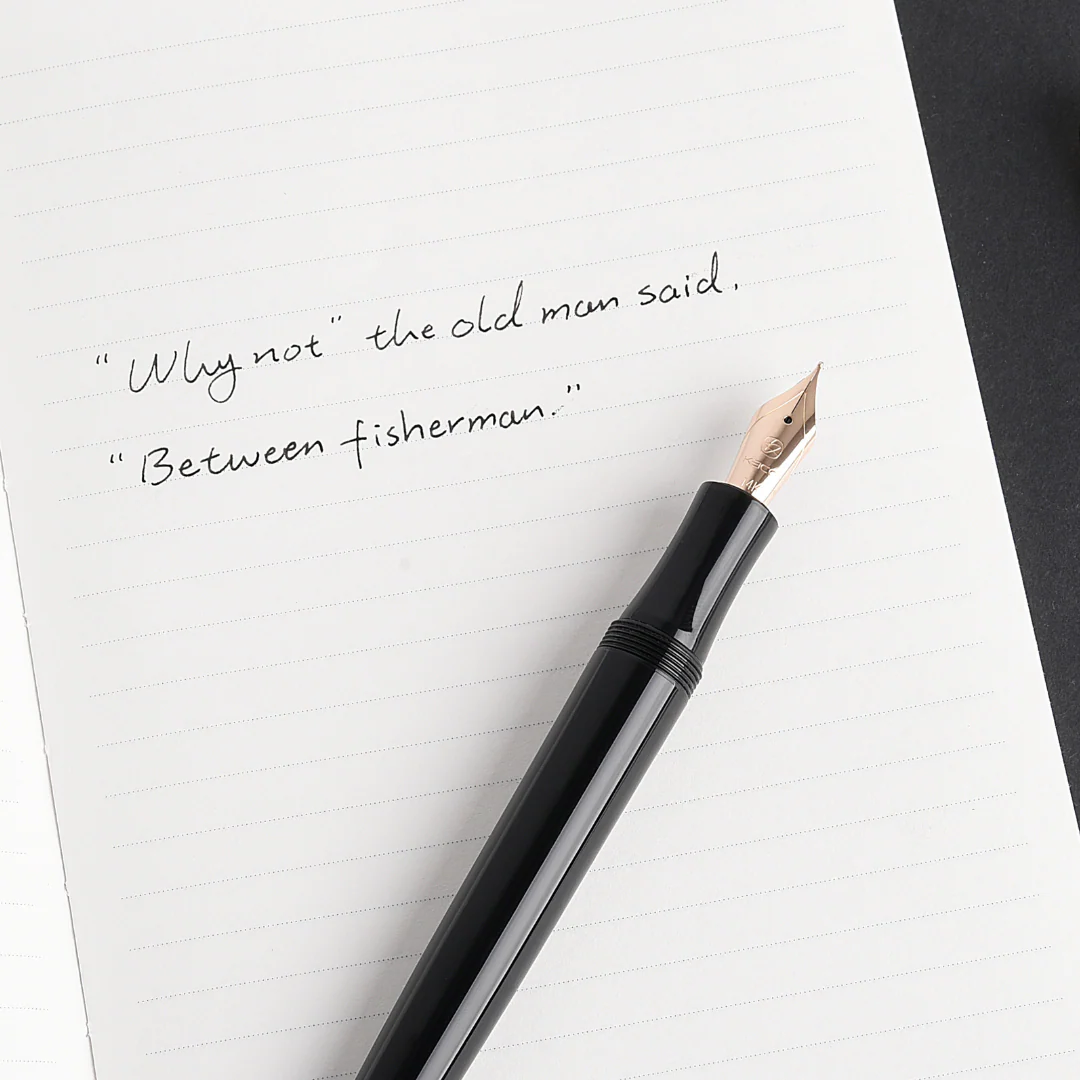 “Why not” the old man said.
“Between fisherman.”
KACO
14K